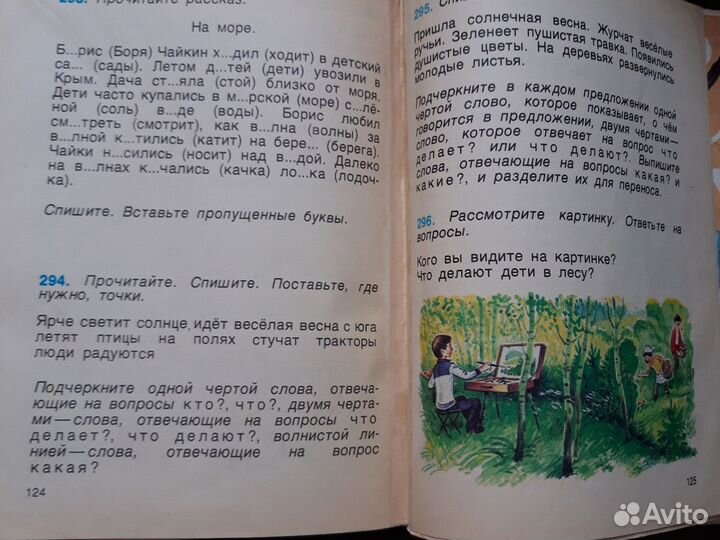 293. Прочитайте рассказ.
На море.
Б...рис (Боря) Чайкин х...дил (ходит) в детский
са... (сады). Летом д...тей (дети) увозили в
Крым. Дача ст...яла (стой) близко от моря.
Дети часто купались в м...рской (море) с...лё-
ной (соль) в...де (воды). Борис любил
см...треть (смотрит), как в...лна (волны) за
в...лной к...тились (катит) на бере... (берега).
Чайки н...сились (носит) над в...дой. Далеко
на в...лнах к...чались (качка) ло...ка (лодоч-
ка).
Спишите. Вставьте пропущенные буквы.
294. Прочитайте. Спишите. Поставьте, где
нужно, точки.
Ярче светит солнце идёт весёлая весна с юга
летят птицы на полях стучат тракторы
люди радуются
Подчеркните одной чертой слова, отвеча-
ющие на вопросы кто?, что?, двумя черта-
ми — слова, отвечающие на вопросы что
делает?, что делают?, волнистой ли-
нией — слова, отвечающие на вопрос
какая?
124
295.
Пришла солнечная весна. Журчат весёлые
ручьи. Зеленеет пушистая травка. Появились
душистые цветы. На деревьях развернулись
молодые листья.
Подчеркните в каждом предложении одной
чертой слово, которое показывает, о чём
говорится в предложении, двумя чертами —
слово, которое отвечает на вопрос что
делает? или что делают?. Выпишите
слова, отвечающие на вопросы какая? и
какие?, и разделите их для переноса.
296. Рассмотрите картинку. Ответьте на
вопросы.
Кого вы видите на картинке?
Что делают дети в лесу?
125
Avito